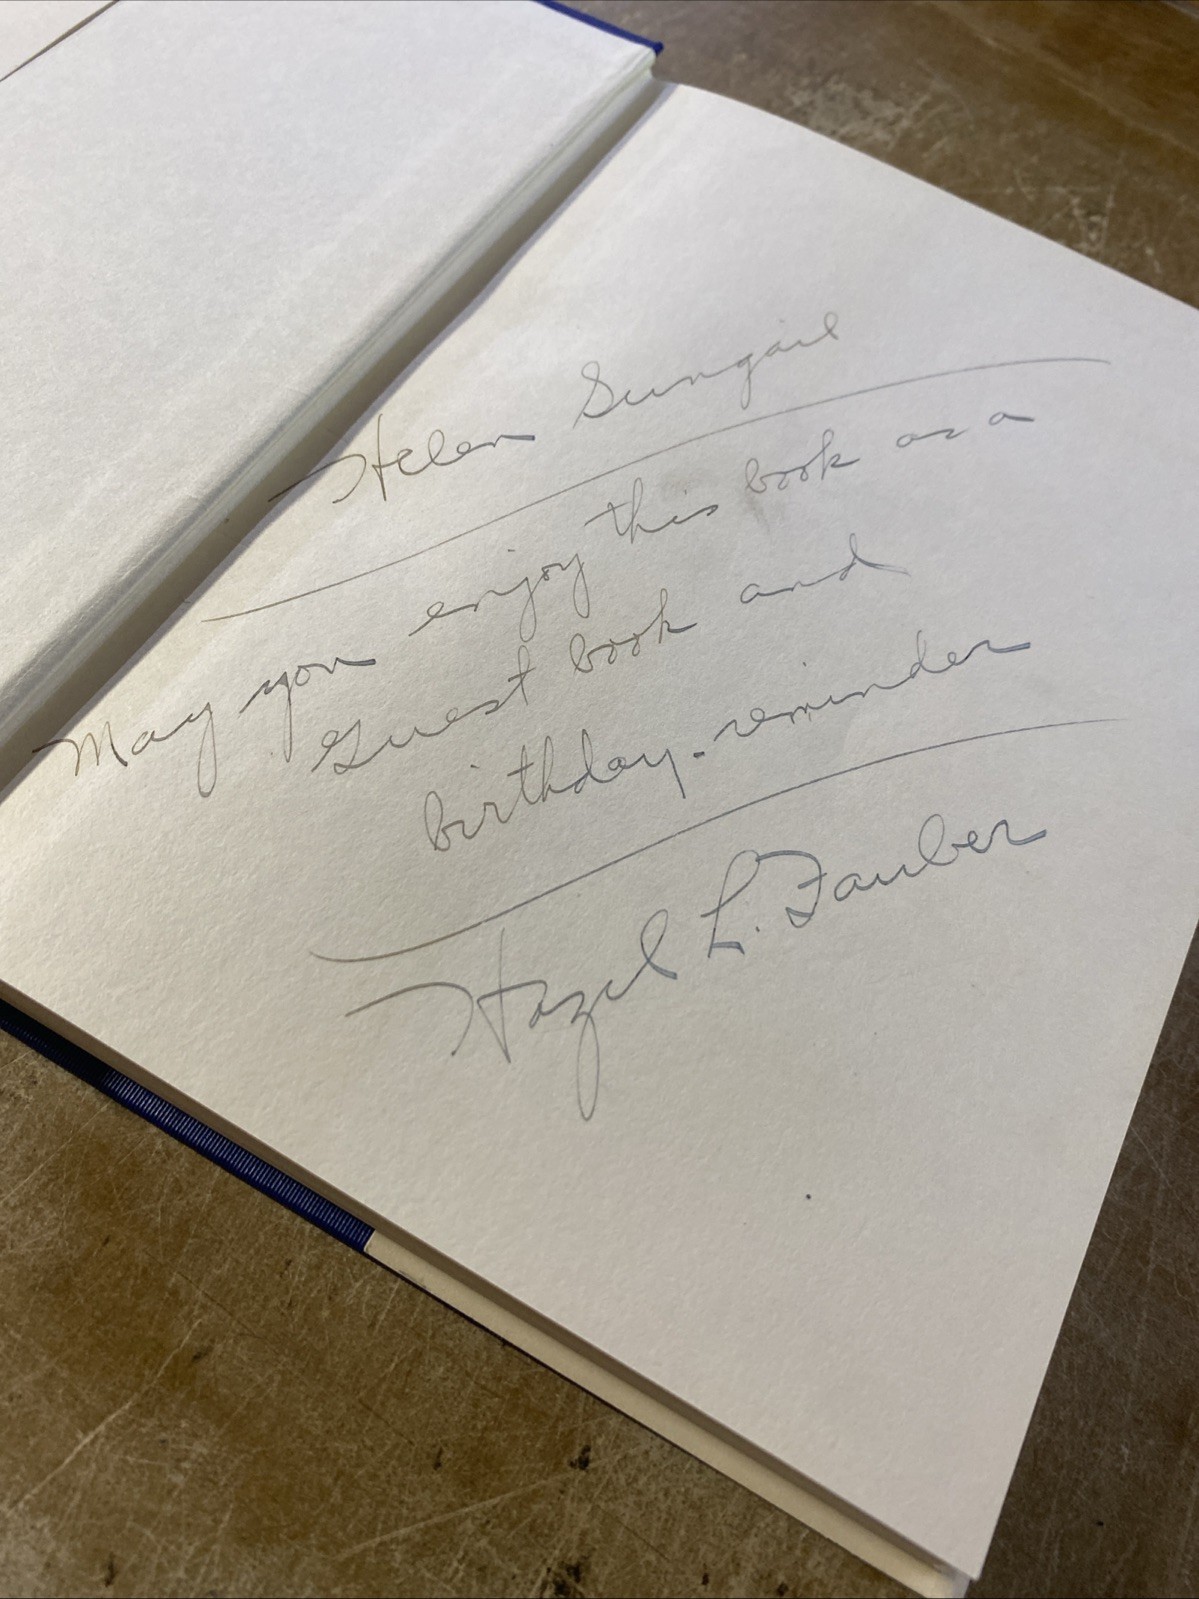 Helen Sungail
May you enjoy this book as a
Guest book and
birthday-reminder
Hazel L. Fauber